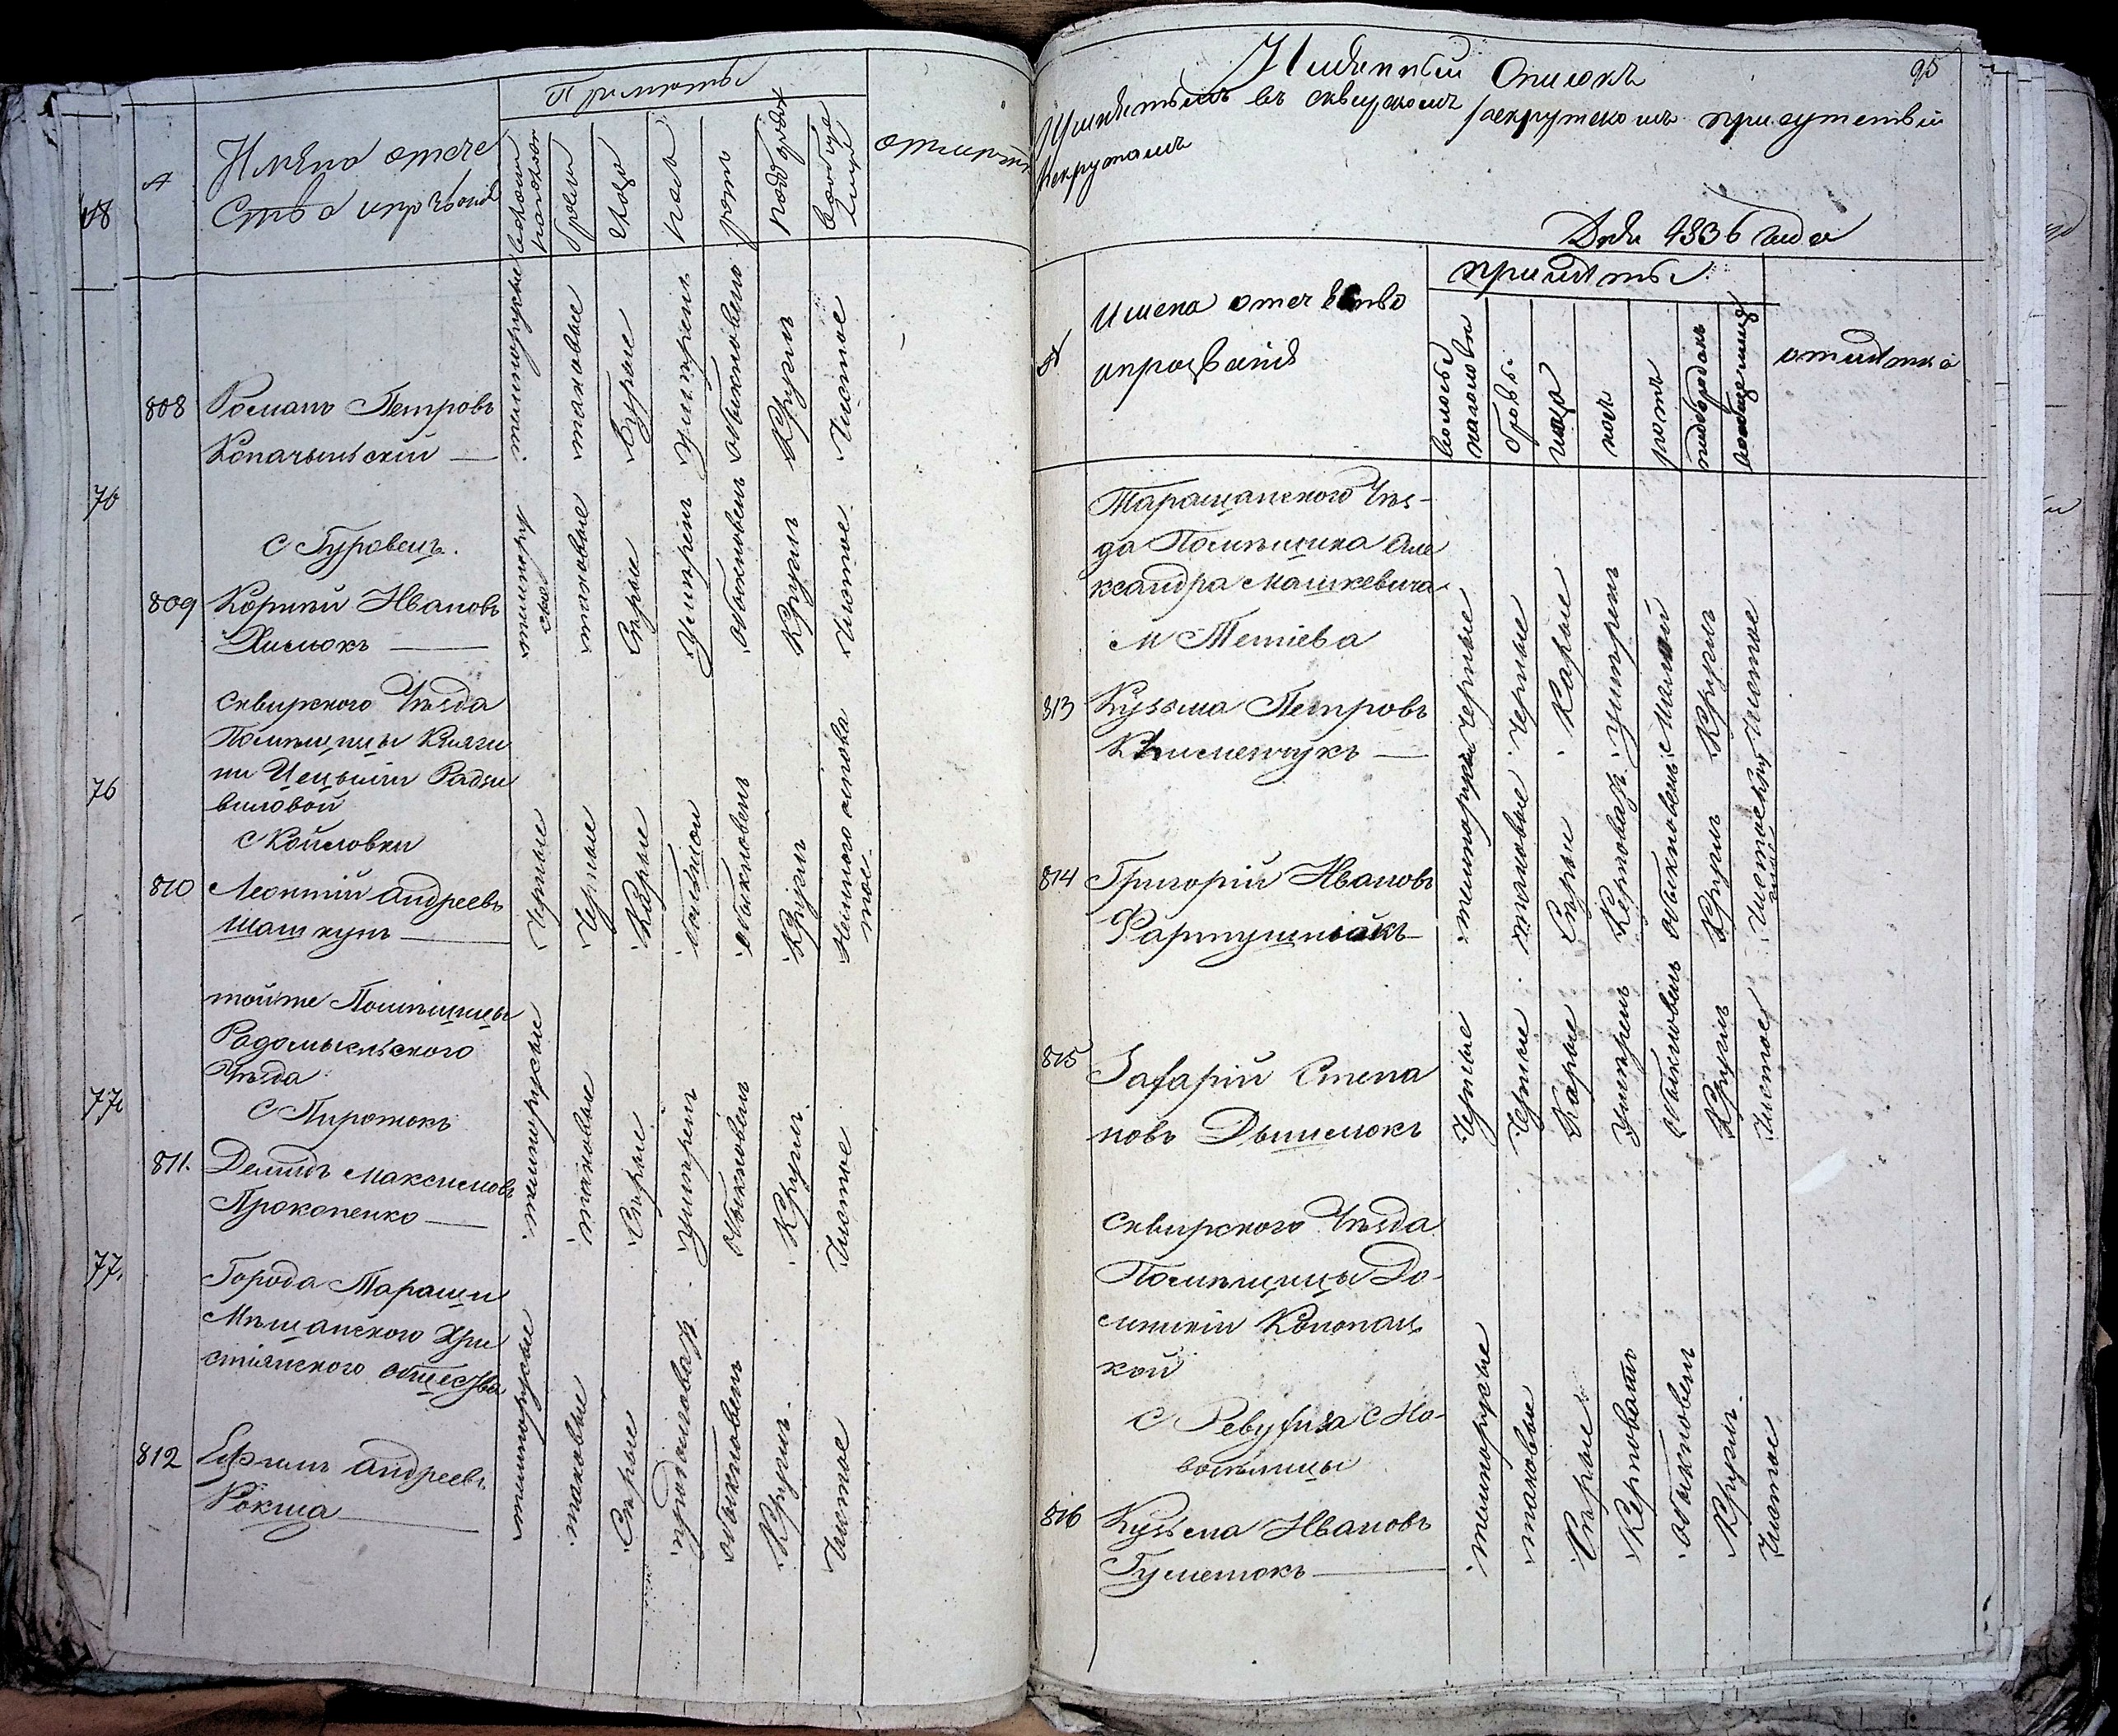 Примѣты
№
Имена отече
ства и прозвание
волосы на головѣ
брови
глаза
носъ
ротъ
подбородокъ
вообще лице
отмѣтка
808
Романъ Петровъ
Копачынскій
темнорусые
таковые
Бурые
Умѣренъ
Обыкновено
Кругли
Чистое
С Гуровецъ.
809
Корний Ивановъ
темнору
сые
таковые
Сѣрые
Умѣренъ
Обыкновенъ
Кругли
Чистое
сквирского Уѣзда
Помѣщицы Княги
ни Цецылии Радзи
виловой
С Койловки
810
Леонтий Андреевъ
Шашкунъ
Черные
Черные
Карые
обыкновенъ
Кругли
Немного оспова
тое
тойже Помѣщицы
Радомысльского
Уѣзда
С Пиротокъ
811.
Демидъ Максимовъ
Прокопенко
темнорусые
таковые
Сѣрые
Умѣренъ
Обыкновенъ
Кругли
Чистое
Города Таращи
Мѣщанского Хри
стіянского общества
812
Ефимъ Андреевъ
Рокша
темнорусые
таковые
Сѣрые
продолговатъ
обыкновенъ
Круглъ
Чистое
76
77
77.
95
Имянный Списокъ
Принятымъ въ сквирскомъ рекрутскомъ присутствіи
рекрутамъ
Дня 1836 года
№
Имена отечество
и прозваніе
примѣты
волосы
на головѣ
брови
глаза
носъ
ротъ
подбородокъ
вообще лице
отмѣтка
Таращанского Уѣз-
да Помѣщика Але
ксандра Машкевича
М Тетіева
813
Кузьма Петровъ
Клименчукъ
Черные
Черные
Карые
Умѣренъ
Малый
Круглъ
Чистое
814
Григорій Ивановъ
Фартушнякъ
темнорусы
таковые
Сѣрыи
Керповатъ
обыкновенъ
Кругли
815
Захарій Степа
новъ Дынмокъ
Черные
Черные
Карые
Умѣренъ
Обыкновенъ
Кругли
Чистое
Сквирского Уѣзда
Помѣщицы До-
миникіи Конопац
кой
С Ревухи С Но-
воселицы
816
Кузьма Ивановъ
Гуменюкъ
темнорусые
таковые
Сѣрые
Керповатъ
обыкновенъ
Круглъ.
Чистое